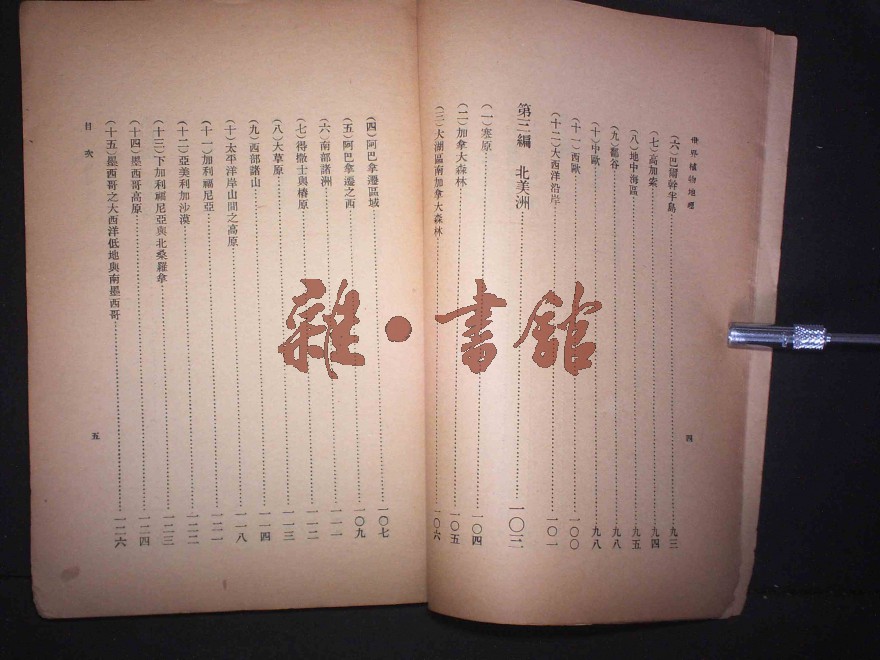 世界植物地理
(六)巴爾幹半島……九三
(七)高加索……九四
(八)地中海區……九五
(九)龍谷……九八
(十)中歐……九八
(十一)西歐……一〇〇
(十二)大西洋沿岸……一〇一
第三編 北美洲……一〇三
(一)寒原……一〇四
(二)加拿大森林……一〇五
(三)大湖區南加拿大森林……一〇六
四
(四)阿巴拿遷區域……一〇七
(五)阿巴拿遷之西……一〇九
(六)南部諸洲……一一一
(七)得撒士與樁原……一一二
(八)大草原……一一三
(九)西部諸山……一一四
(十)太平洋岸山間之高原……一一八
(十一)加利福尼亞……一二一
(十二)亞美利加沙漠……一二二
(十三)下加利福尼亞與北桑羅拿……一二三
(十四)墨西哥高原……一二四
(十五)墨西哥之大西洋低地與南墨西哥……一二六
目次
五
雜·書館